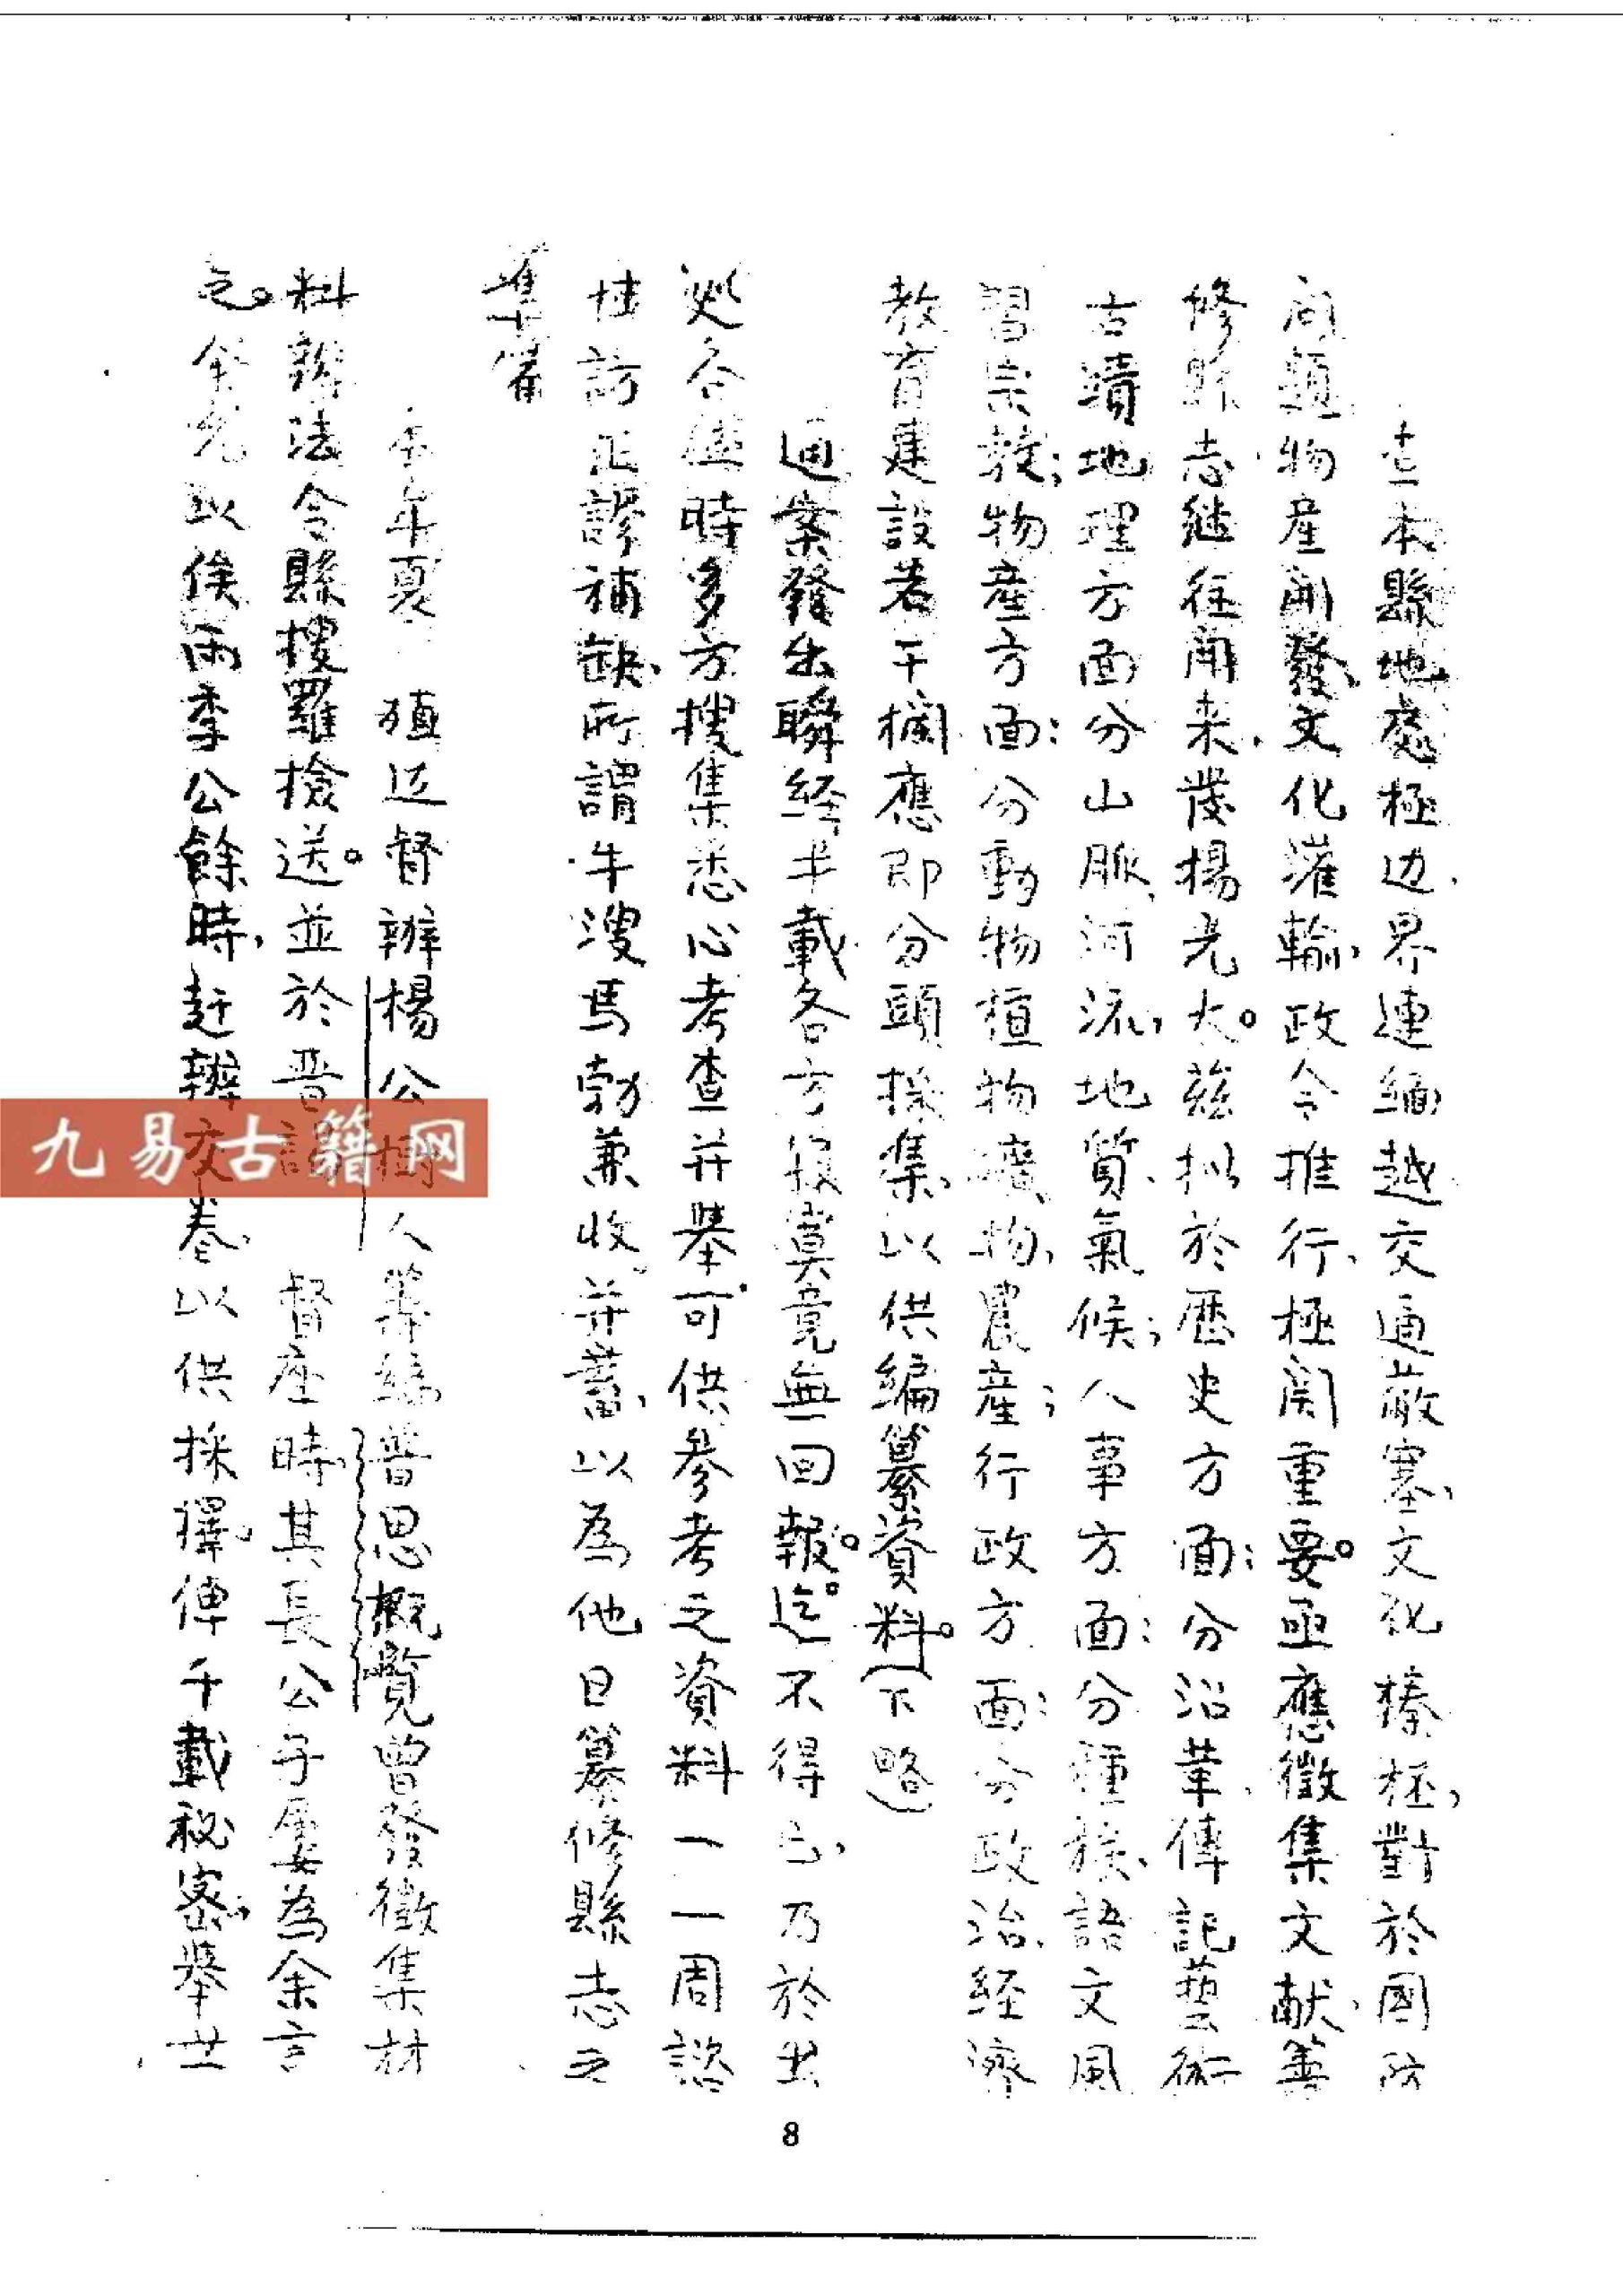 查本縣地處極边、界連緬越交通蔽塞、文化榛柸，對於國防
問題物産開發、文化灌輸，政令推行、極関重要。亟應徵集文献、籌
修縣志継往開来，發揚光大。兹拟於歴史方面：分沿革、傳記藝術
古蹟地理方面分山脈、河流，地質、氣候；人事方面：分種族、語文風
習宗教；物産方面：分動物植物礦物、農産；行政方面：分政治、経濟
教育建設若干欄應即分頭採集、以供編纂資料。（下略）
通案發出瞬経半載各方寂寞竟無一回報。迄不得已，乃於出
巡各 時多方搜集悉心考查并舉可供參考之資料一一周諮
博訪正謬補缺、所謂牛溲馬勃兼收并蓄、以為他日纂修縣志之
準備
本年夏 殖边督辦楊公 人籌编普思概覧曾發徵集材
料辦法令縣搜羅撿送。並於晋 督座時其長公子屢為余言
之。余允以俟雨季公餘時，赶辦交卷、以供採擇。俾千載秘密、舉世
8
九易古籍网